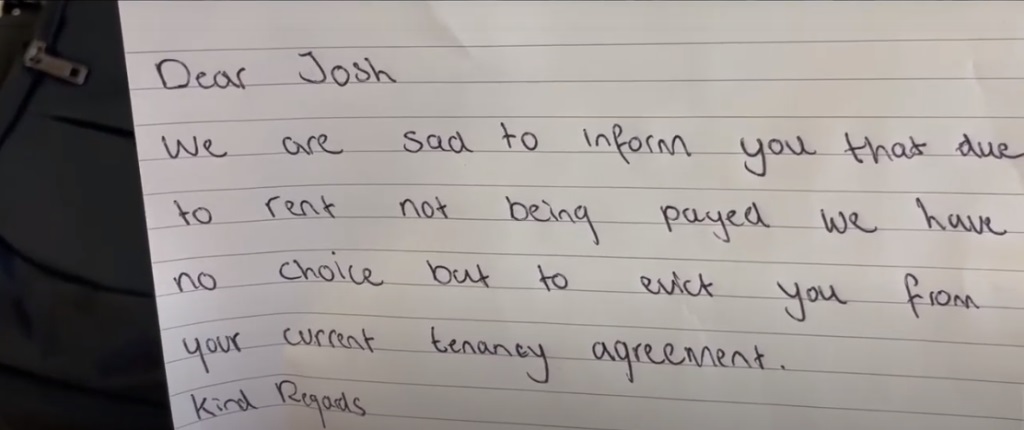 Dear Josh
We are sad to inform you that due
to rent not being payed we have
no choice but to evict you from
your current tenancy agreement.
Kind Regads